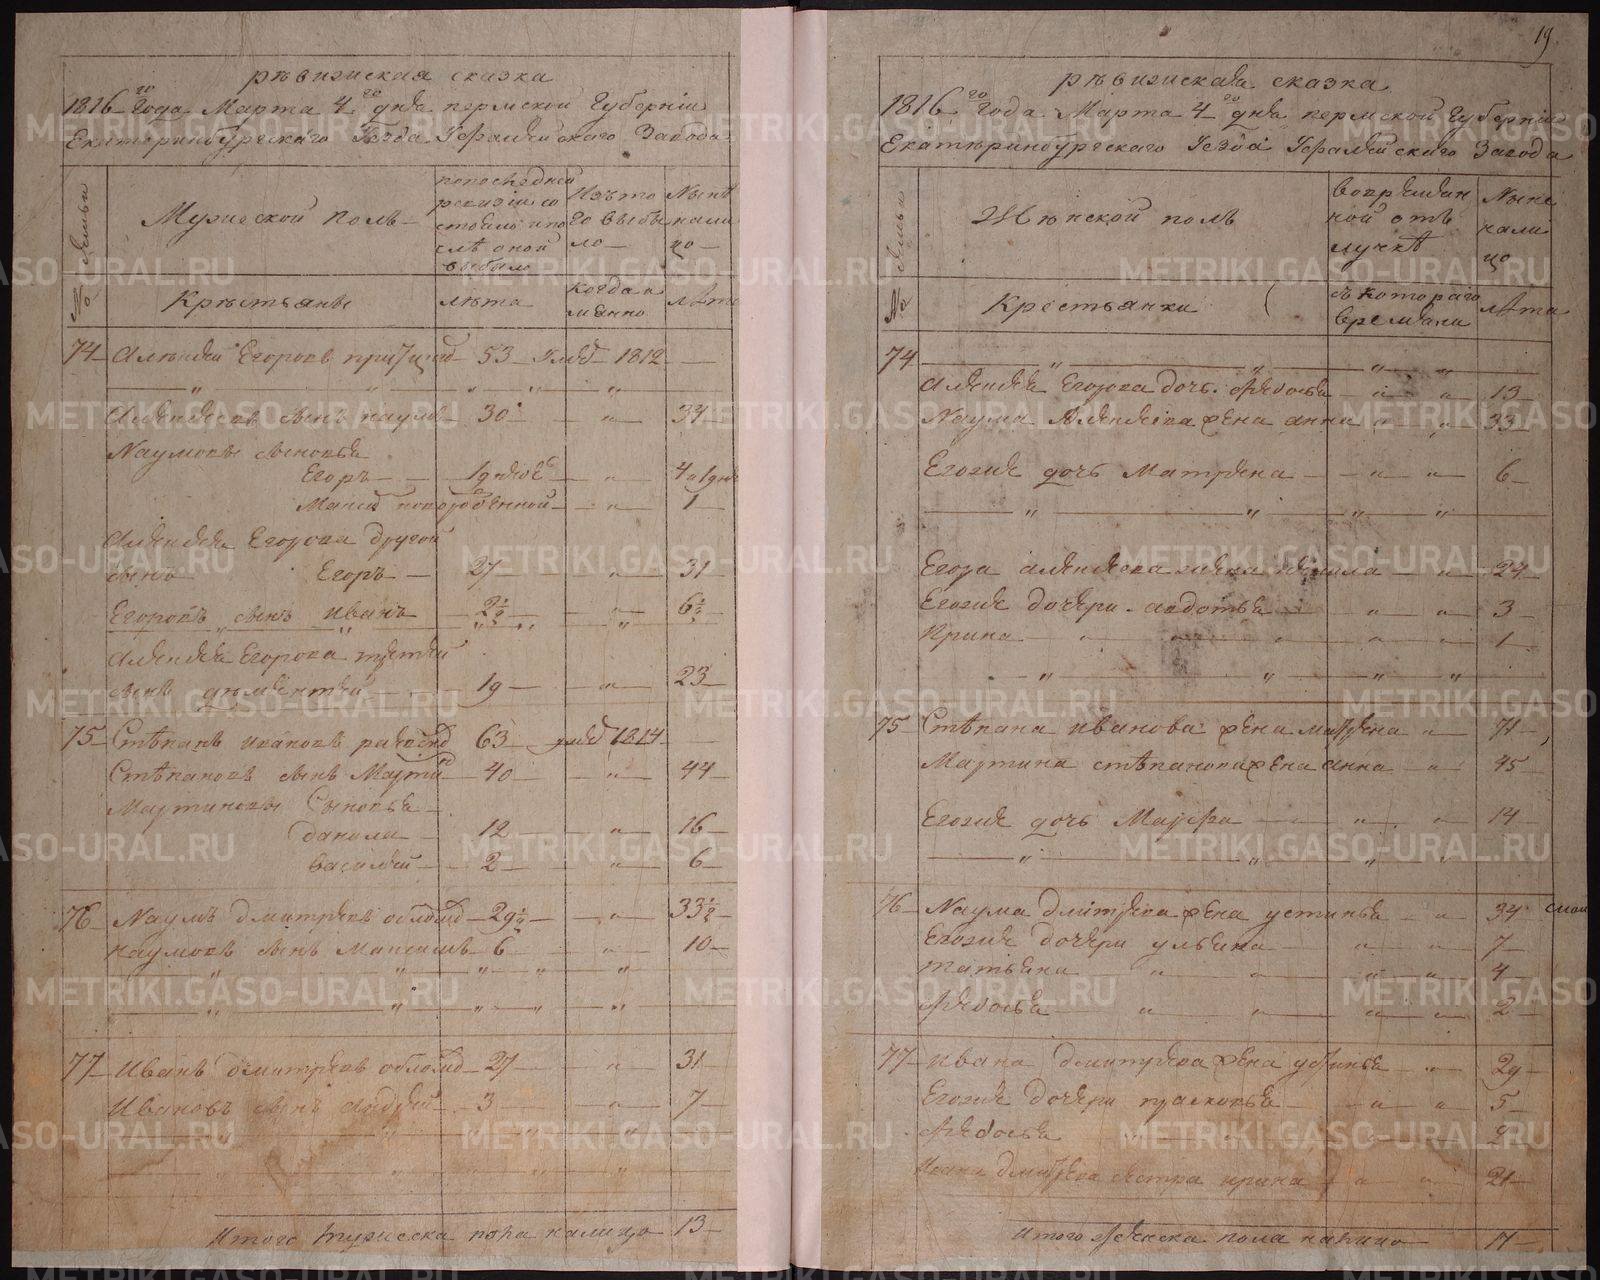 рѣвижская сказка
1816 го Года Марта 4 го дня пермской Губерніи
Екатеринбургскаго Уезда Уфалейскаго Завода
№ Семьи
Мужеской полъ
попоследней ревизіи состояло ипослѣ оной выбыло
Изъ того выбыло
Нынѣ налицо
Крѣстьяне
лѣта
когда имянно
лѣта
74 Алексей Егоровъ 53 1812
Алексеевъ сынъ наумъ 30 34
Наумовы сыновья
Егоръ 4
1
Алексея Егорова другой
сынъ Егоръ 27 31
Егоровъ сынъ иванъ 2½ 6½
Алексея Егорова третей
сынъ дементей 19 23
75 Степанъ ивановъ 63 1814
Степановъ сынъ Мартинъ 40 44
Мартиновы Сыновья
данила 12 16
василей 2 6
76 Наумъ дмитреевъ 29½ 33½
наумовъ сынъ Максимъ 6 10
77 Иванъ дмитреевъ 27 31
Ивановъ сынъ андрей 3 7
Итого мужеска пола налицо 13
19
рѣвижская сказка
1816 го Года Марта 4 го дня пермской Губерніи
Екатеринбургскаго Уезда Уфалейскаго Завода
№ Семьи
Женской полъ
вовремянной отлучкѣ
Ныне налицо
Крестьянки
съ котораго времени
лѣта
74
Алексея Егорова дочь Федосья 13
Наума Алексеева жена анна 33
Егожъ дочь Матрена 6
Егора алексеева жена 24
Егожъ дочери авдотья 3
Ирина 1
75 Степана иванова жена матрена 71
Мартина степанова жена анна 45
Егожъ дочь Марфа 14
76 Наума дмитреева жена устинья 34
Егожъ дочери ульяна 7
татьяна 4
Федосья 2
77 ивана дмитреева жена 29
Егожъ дочери прасковья 5
Федосья 2
дмитреева сестра ирина 21
Итого женска пола налицо 17
METRIKI.GASO-URAL.RU